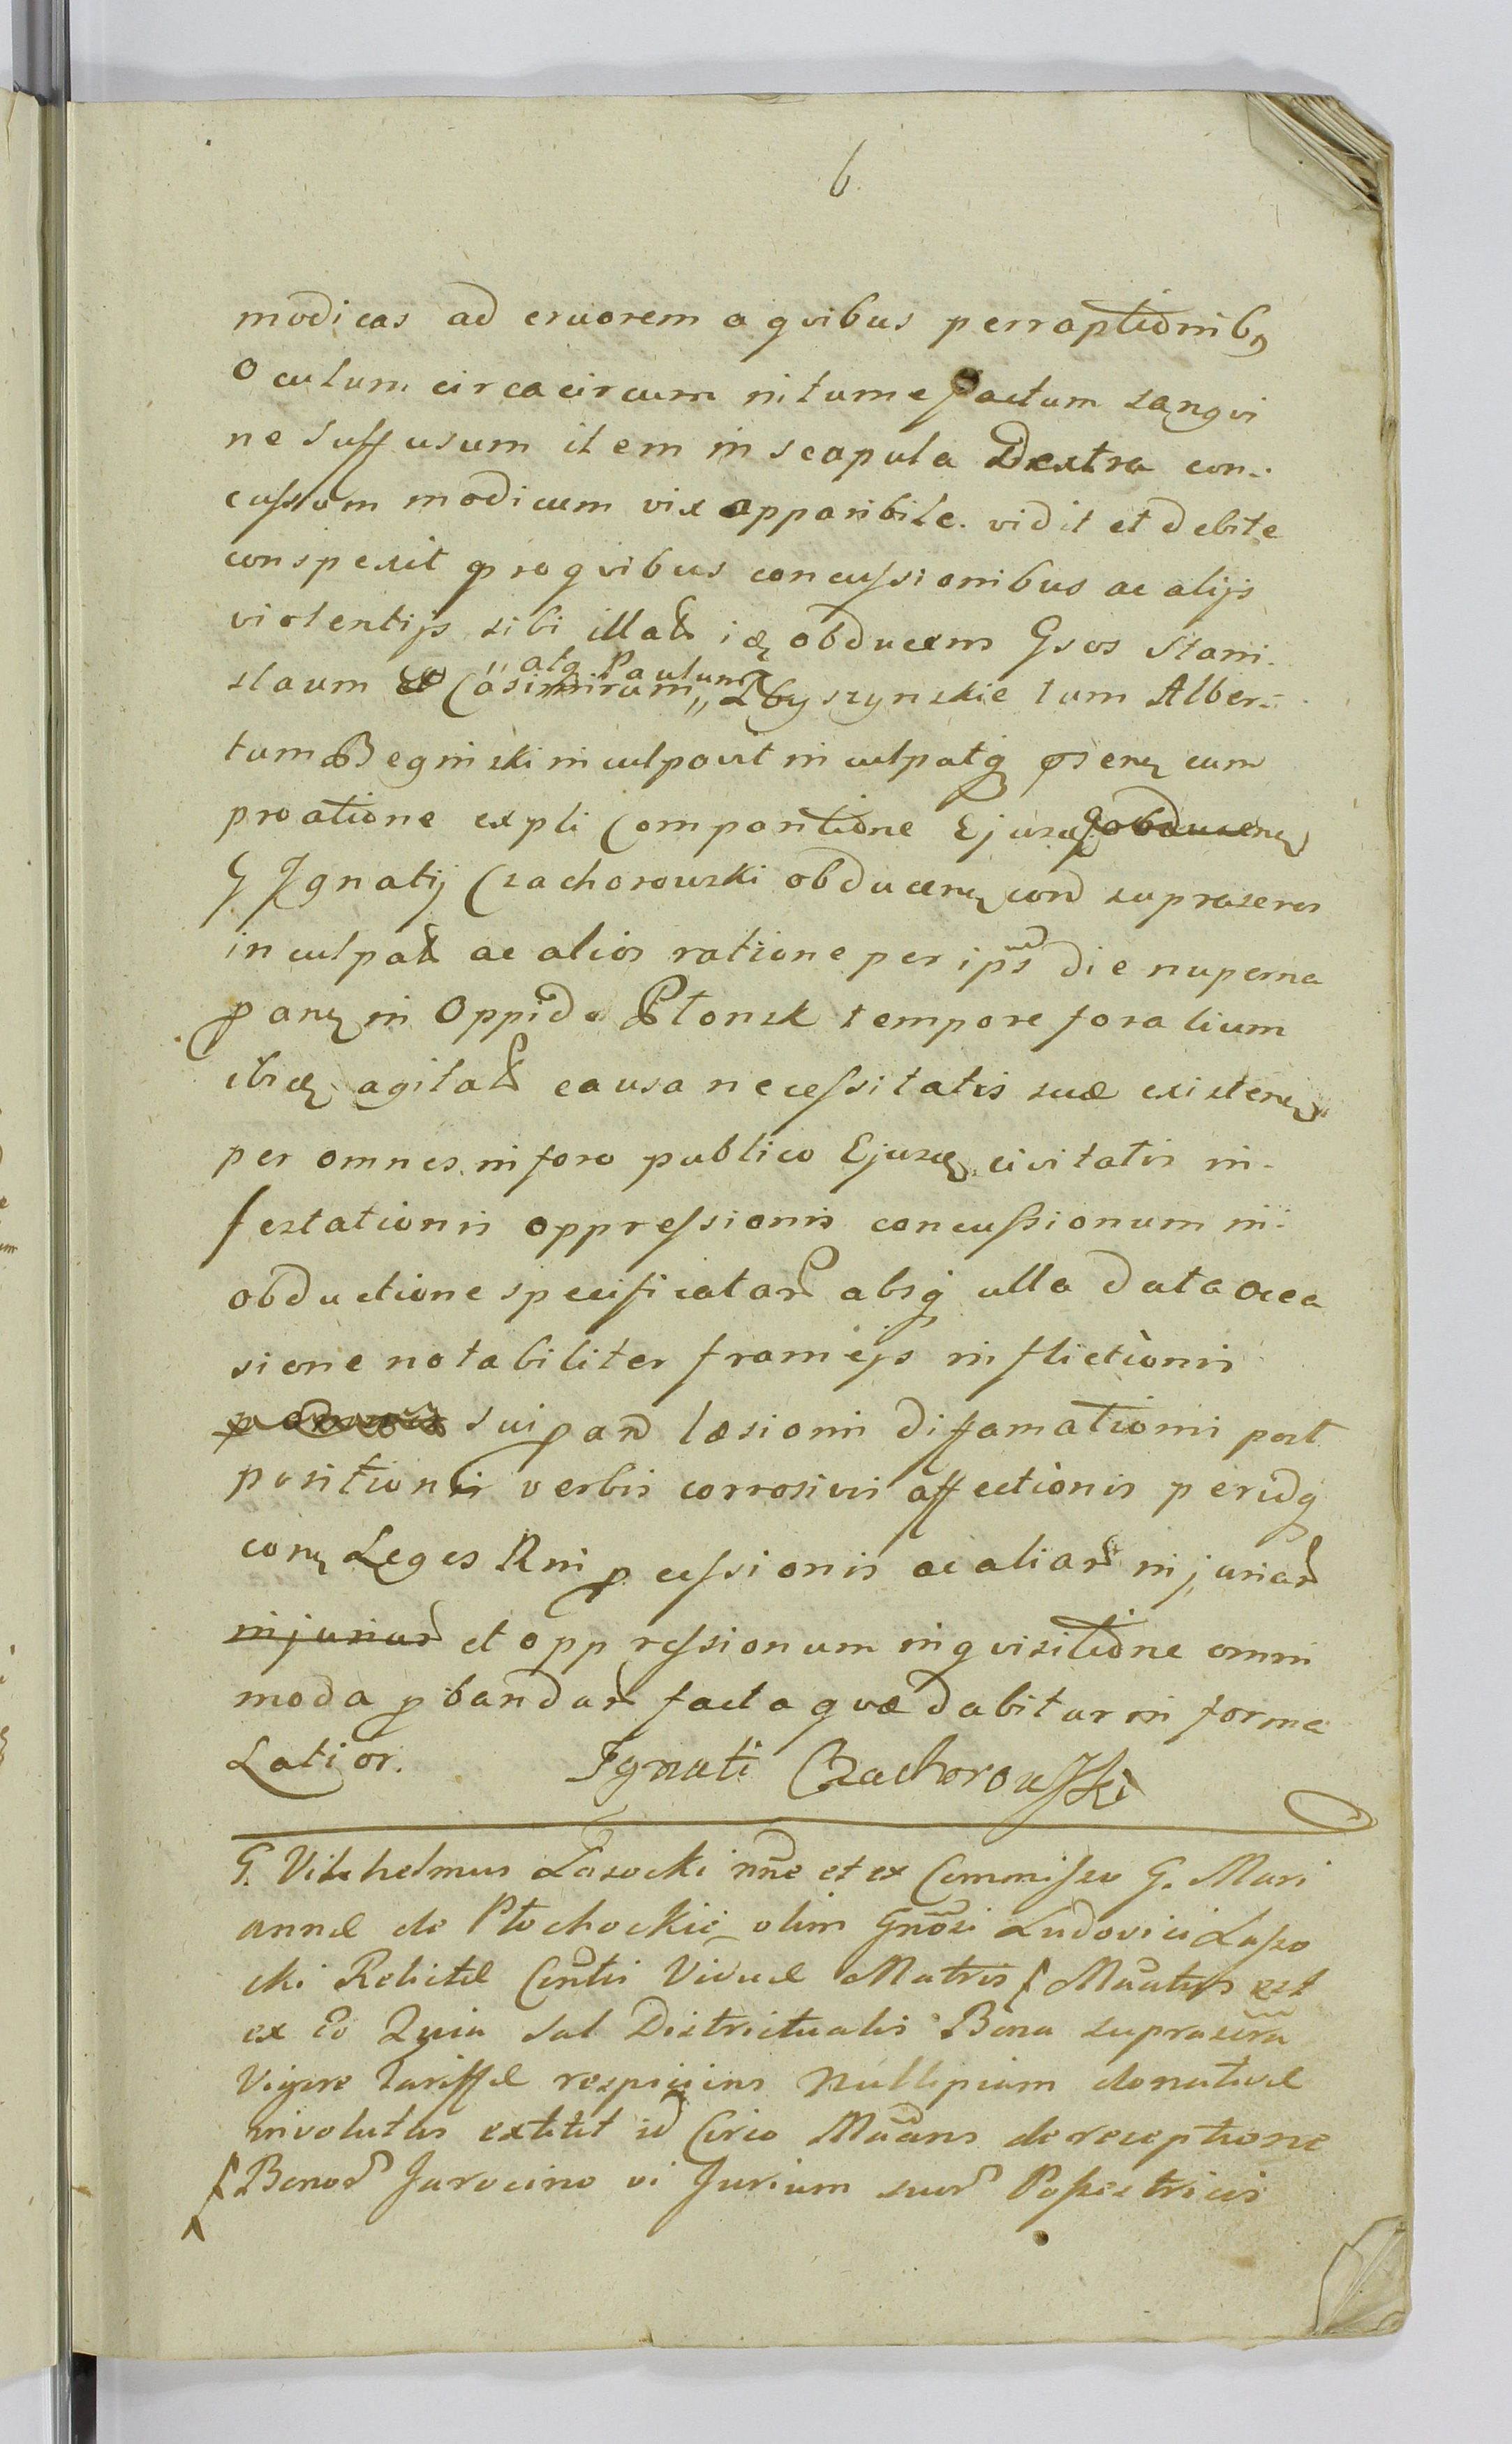 6.
modicas ad cruorem a qvibus perraptionib9
Oculum circacircum nitumefactum sangvi
ne suffusum item in scapula Dextra con-
cussum modicum vix apparibile. vidit et debite
conspexit pro qvibus concussionibus ac alijs
violentijs sibi illat obducens Gsos Stani-
slaum et Casimirum „atq Paulum„ Zbyszynskie tum Alber-
tum Beginski inculpavit inculpatq cum
pro atione expli Compantione Ejusd obducen
G Ignatij Czachorowski obducen con suprascros
inculpat ac alios ratione per ips die nuperna
in Oppido Płonsk tempore foralium
ibid agitat causa necessitatis suæ existen
per omnes in foro publico Ejusd civitatis in-
festationis oppressionis concussionum in
obductione specificatar absq ulla data occa
sione notabiliter framejs inflictionis
sui læsionis diffamationis post
positionis verbis corrosivis affectionis
con Leges Rni pcussionis ac aliar injuriar
injuriar et oppressionum inqvisitione omni
moda pbandar facta qvæ dabitur in forma
Latior. Ignati Czachorowski
G. Vilhelmus Lasocki nne et ex Commisso G. Mari
annæ de Płochockie olim Gnosi Ludovici Lasso
cki Relictæ Viduæ Matris Mãatus est
ex Eo Quia Sal Districtualis Bona suprascra
Vigore Tariffæ respiciens Nullipiam donativæ
involutus extitit id Circo Mãans de receptione
Bonor Jarocino vi Jurium suor Possestricis